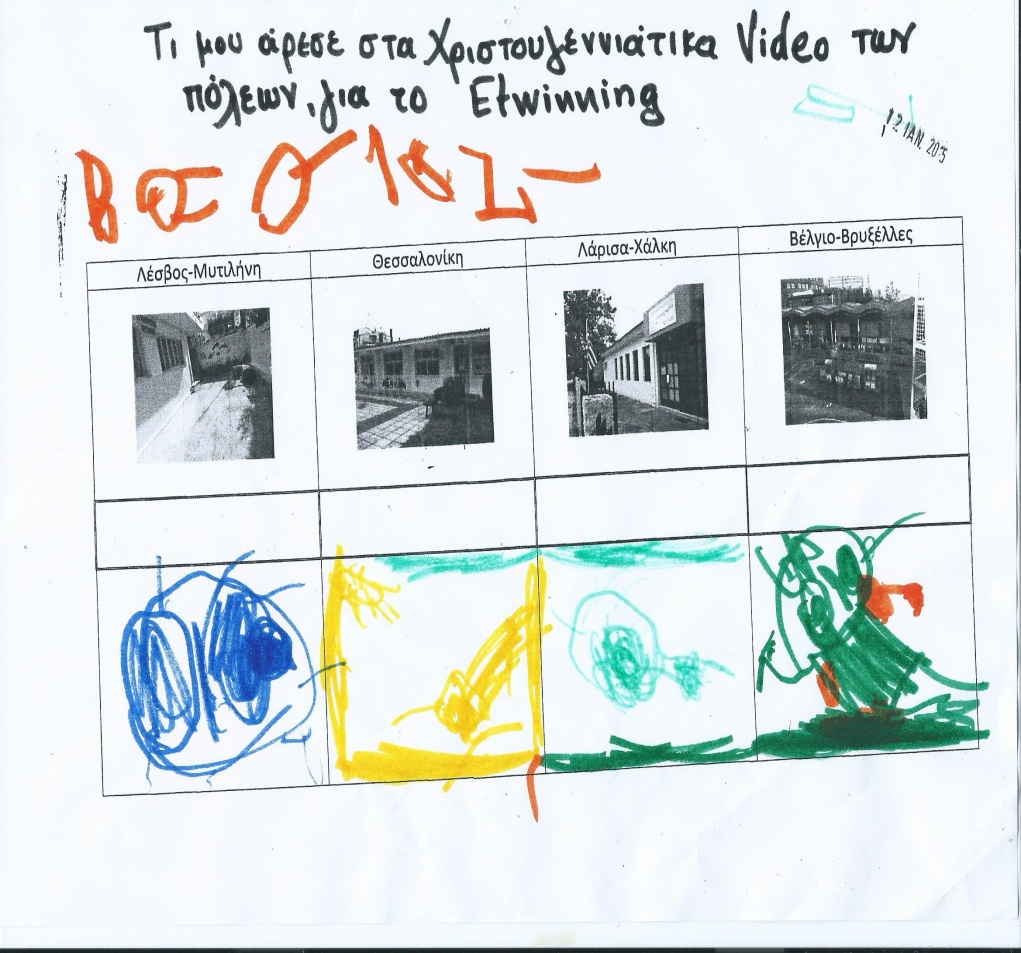 Τι μου άρεσε στα Χριστουγεννιάτικα Video των
πόλεων, για το Etwinning
12 ΙΑΝ. 2015
Λέσβος-Μυτιλήνη
Θεσσαλονίκη
Λάρισα-Χάλκη
Βέλγιο-Βρυξέλλες